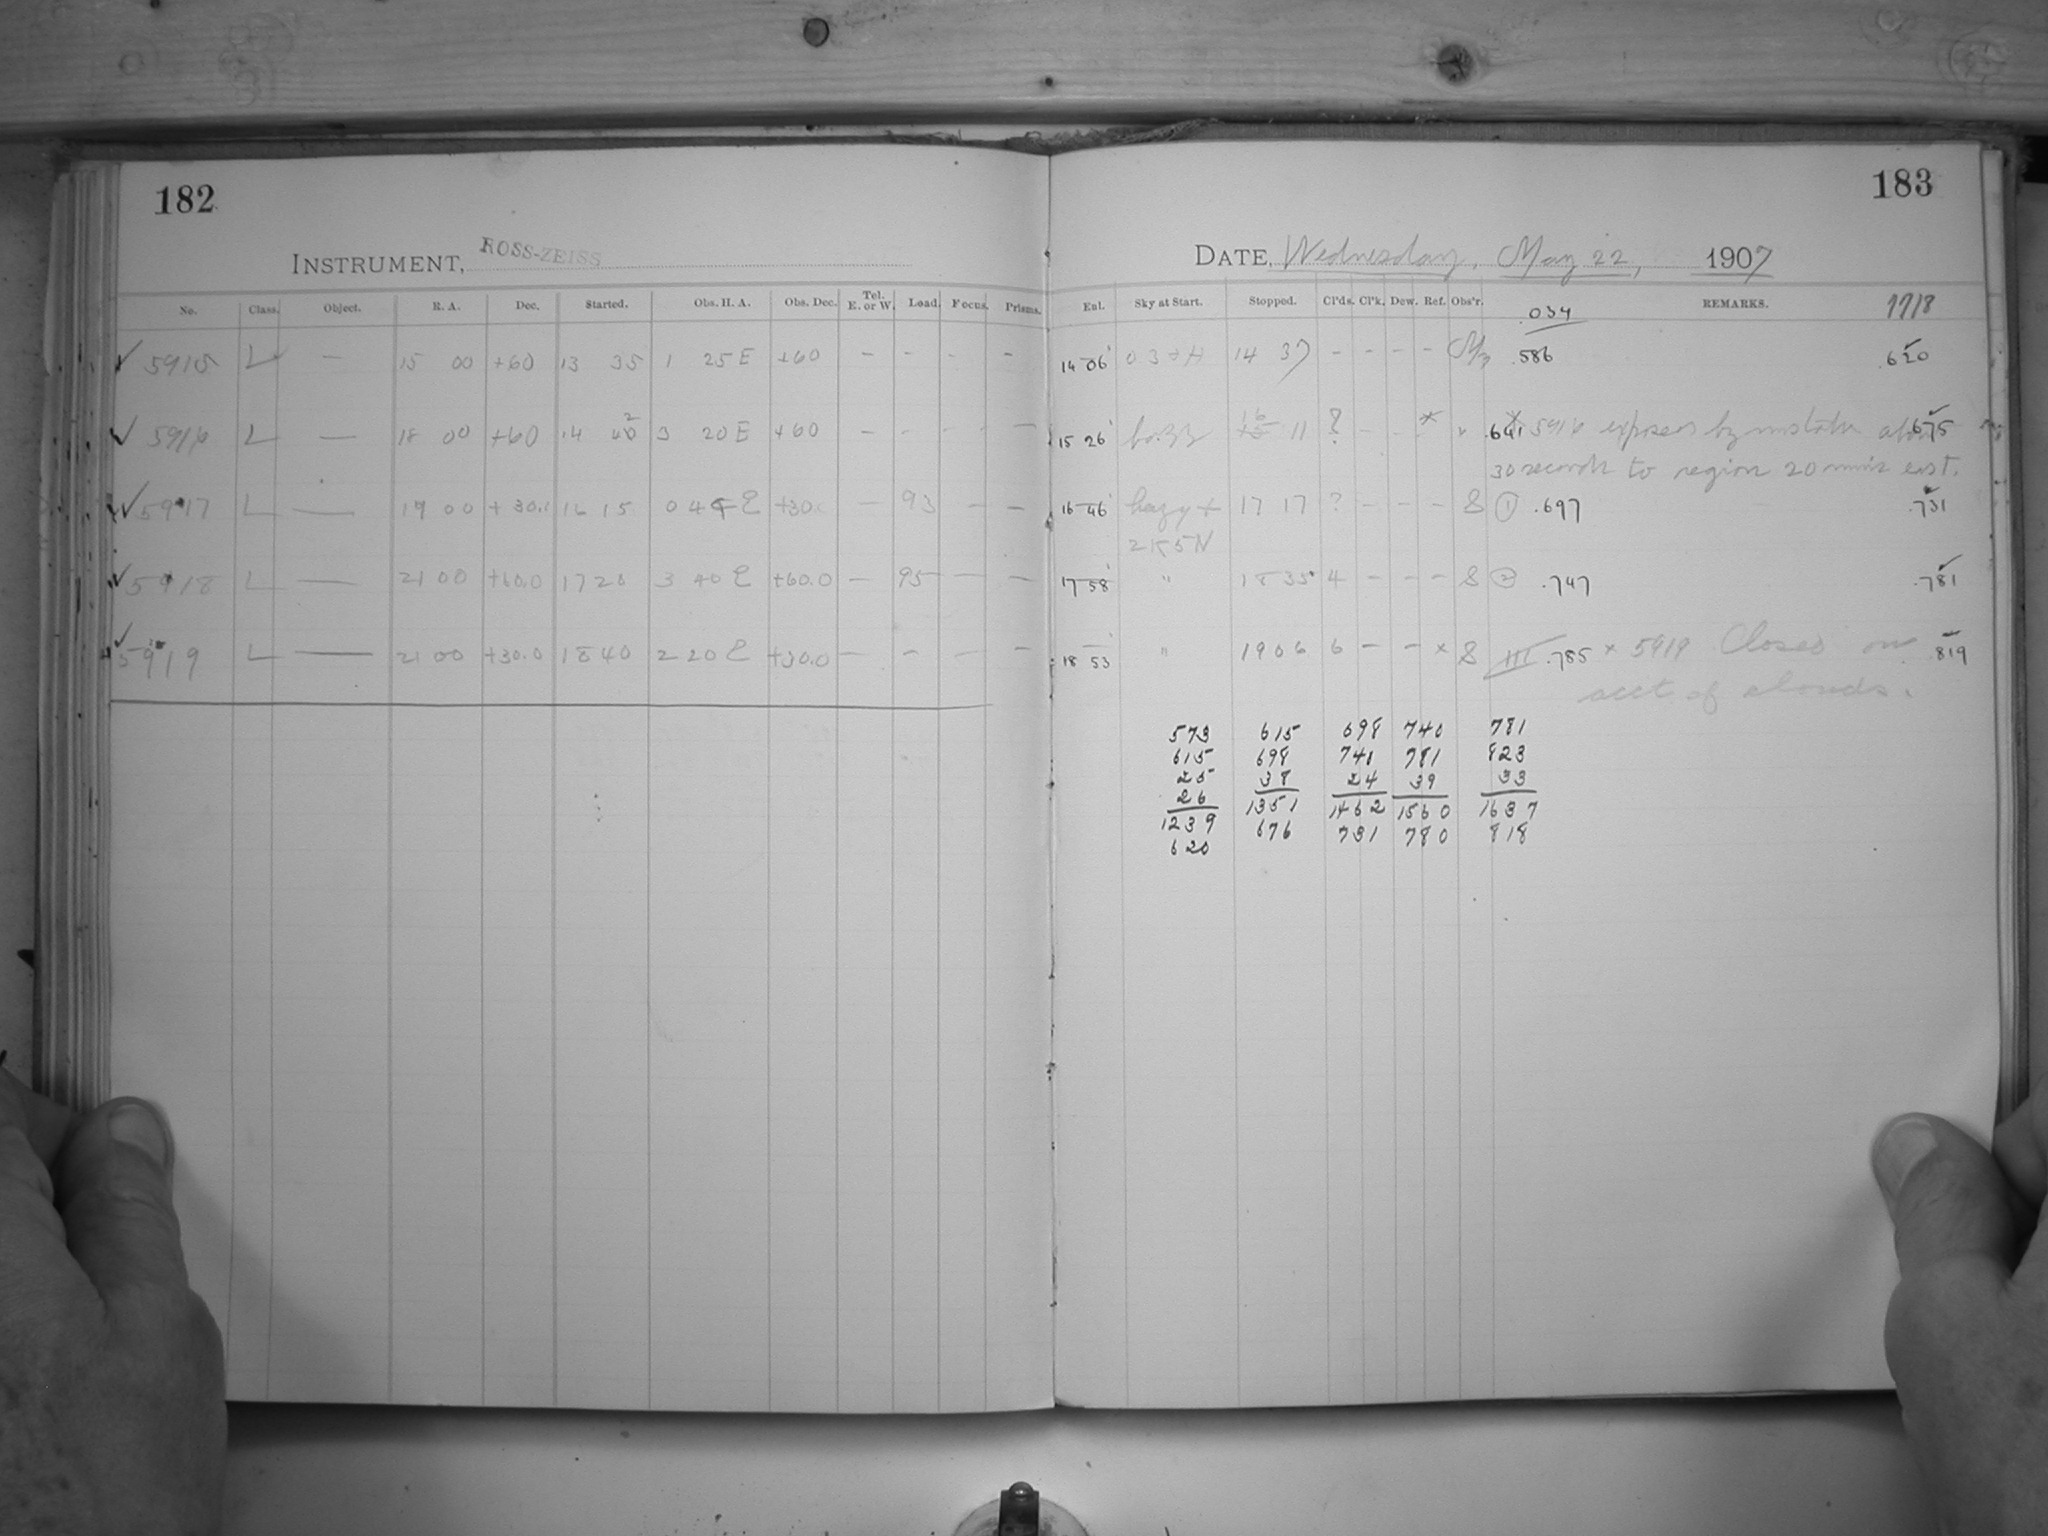 182
INSTRUMENT, ROSS-ZEISS
No. Class. Object. R. A. Dec. Started. Obs. H. A. Obs. Dec. Tel. E. or W. Load. Focus. Prisms.
✓ 5915 L — 15 00 +60 13 35 1 25 E +60 — — — —
✓ 5916 L — 18 00 +60 14 40 2 3 20 E +60 — — — —
✓ 5917 L — 17 00 +30.0 16 15 0 45 E +30.0 — 93 — —
✓ 5918 L — 21 00 +60.0 17 20 3 40 E +60.0 — 95 — —
✓ 5919 L — 21 00 +30.0 18 40 2 20 E +30.0 — — — —
183
DATE, Wednesday, May 22, 1907
Ent. Sky at Start. Stopped. Cl'ds. Cl'k. Dew. Ref. Obs'r. REMARKS. 1718
.034
14 06 14 37 — — — — .586 .620
15 26 hazy 16 11 ? — — * " .641 * 5916 exposed by mistake about .675
30 seconds to region 20 mins east.
16 46 hazy + 17 17 ? — — — S ① .697 .731
2K5N
17 58 " 18 35 4 — — — S ② .747 .781
18 53 " 19 06 6 — — × S III .785 × 5919 Closed on .819
acct of clouds.
573 615 698 740 781
615 698 741 781 823
25 38 24 39 33
26 1351 1462 1560 1637
1239 676 731 780 818
620